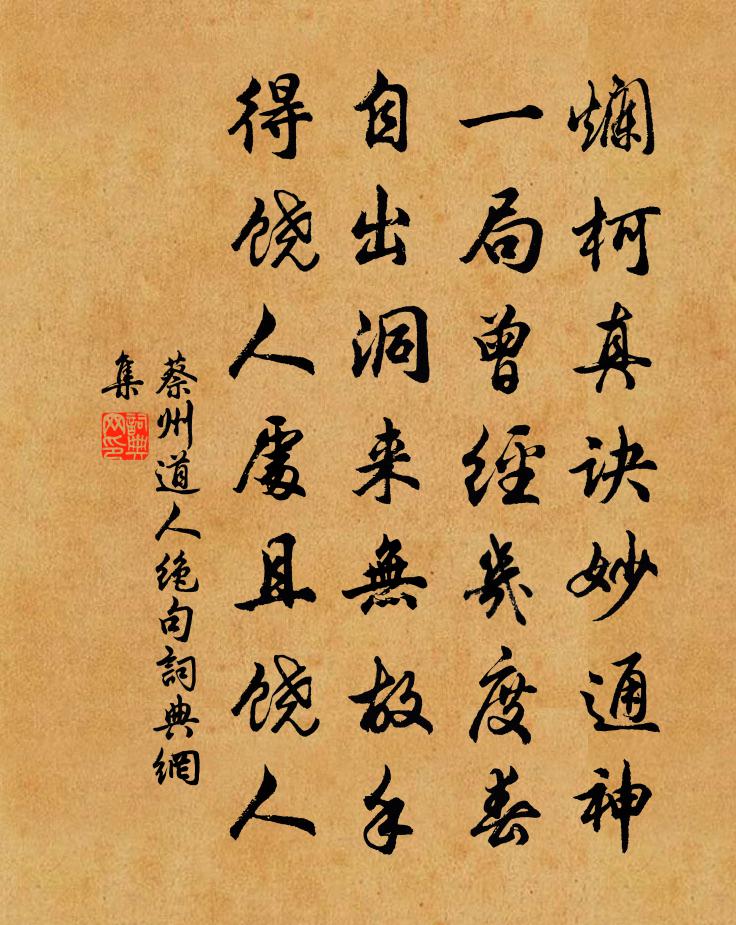 爛柯真诀妙通神
一局曾經幾度春
自出洞来無敌手
得饶人處且饶人
蔡州道人絶句詞典網
集
詞典
网印